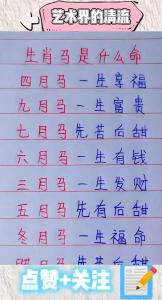 艺术界的清流
生肖马是什么命
四月马一生享福
九月马一生富贵
七月马先苦后甜
六月马一生有钱
三月马一生发财
五月马先苦后甜
冬月马一生福命
点赞+关注